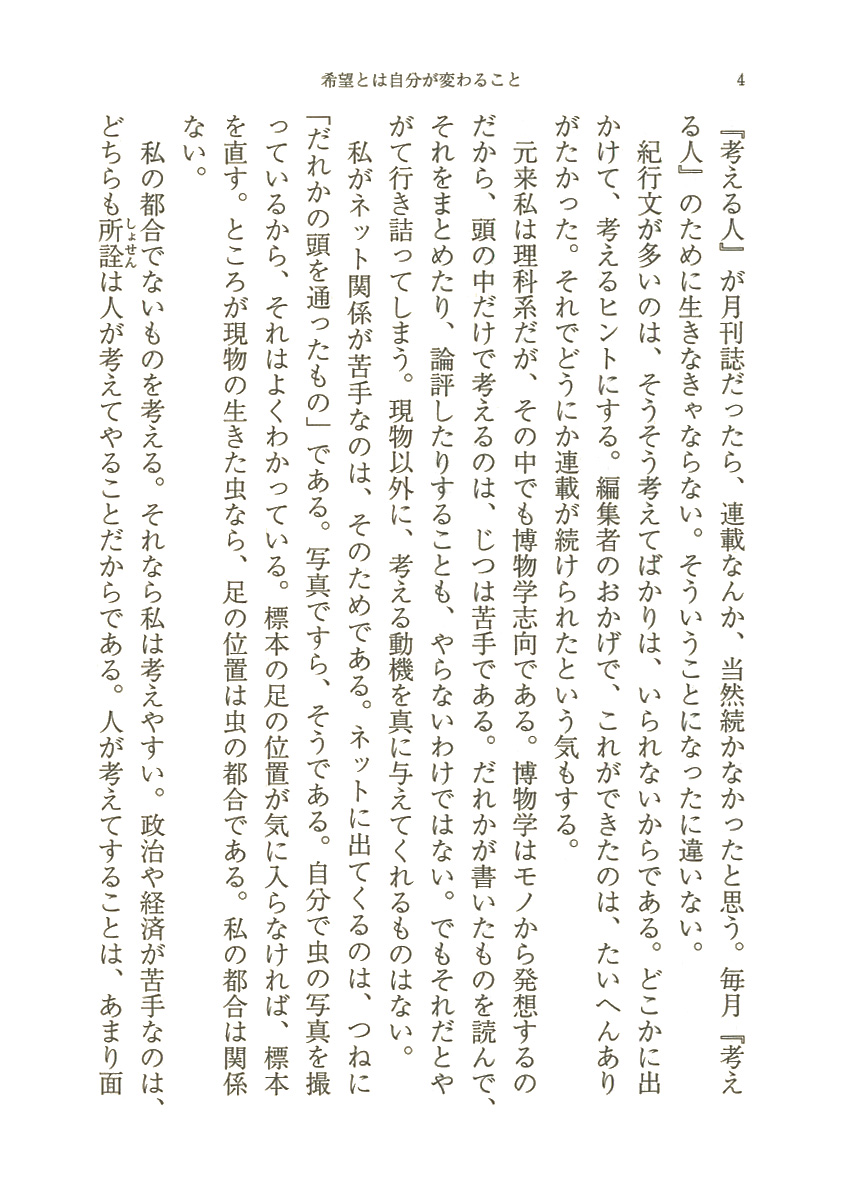 希望とは自分が変わること
4
『考える人』が月刊誌だったら、連載なんか、当然続かなかったと思う。毎月『考え
る人』のために生きなきゃならない。そういうことになったに違いない。
紀行文が多いのは、そうそう考えてばかりは、いられないからである。どこかに出
かけて、考えるヒントにする。編集者のおかげで、これができたのは、たいへんあり
がたかった。それでどうにか連載が続けられたという気もする。
元来私は理科系だが、その中でも博物学志向である。博物学はモノから発想するの
だから、頭の中だけで考えるのは、じつは苦手である。だれかが書いたものを読んで、
それをまとめたり、論評したりすることも、やらないわけではない。でもそれだとや
がて行き詰ってしまう。現物以外に、考える動機を真に与えてくれるものはない。
私がネット関係が苦手なのは、そのためである。ネットに出てくるのは、つねに
「だれかの頭を通ったもの」である。写真ですら、そうである。自分で虫の写真を撮
っているから、それはよくわかっている。標本の足の位置が気に入らなければ、標本
を直す。ところが現物の生きた虫なら、足の位置は虫の都合である。私の都合は関係
ない。
私の都合でないものを考える。それなら私は考えやすい。政治や経済が苦手なのは、
しょせん
どちらも所詮は人が考えてやることだからである。人が考えてすることは、あまり面